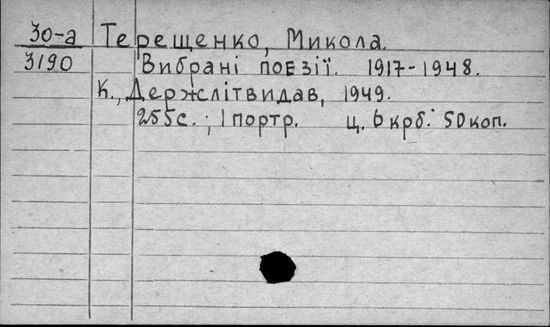 30-а Терещенко, Микола.
3190 Вибрані поезії. 1917-1948.
К., Держлітвидав, 1949.
255с.; 1 портр. ц. 6 крб. 50 коп.